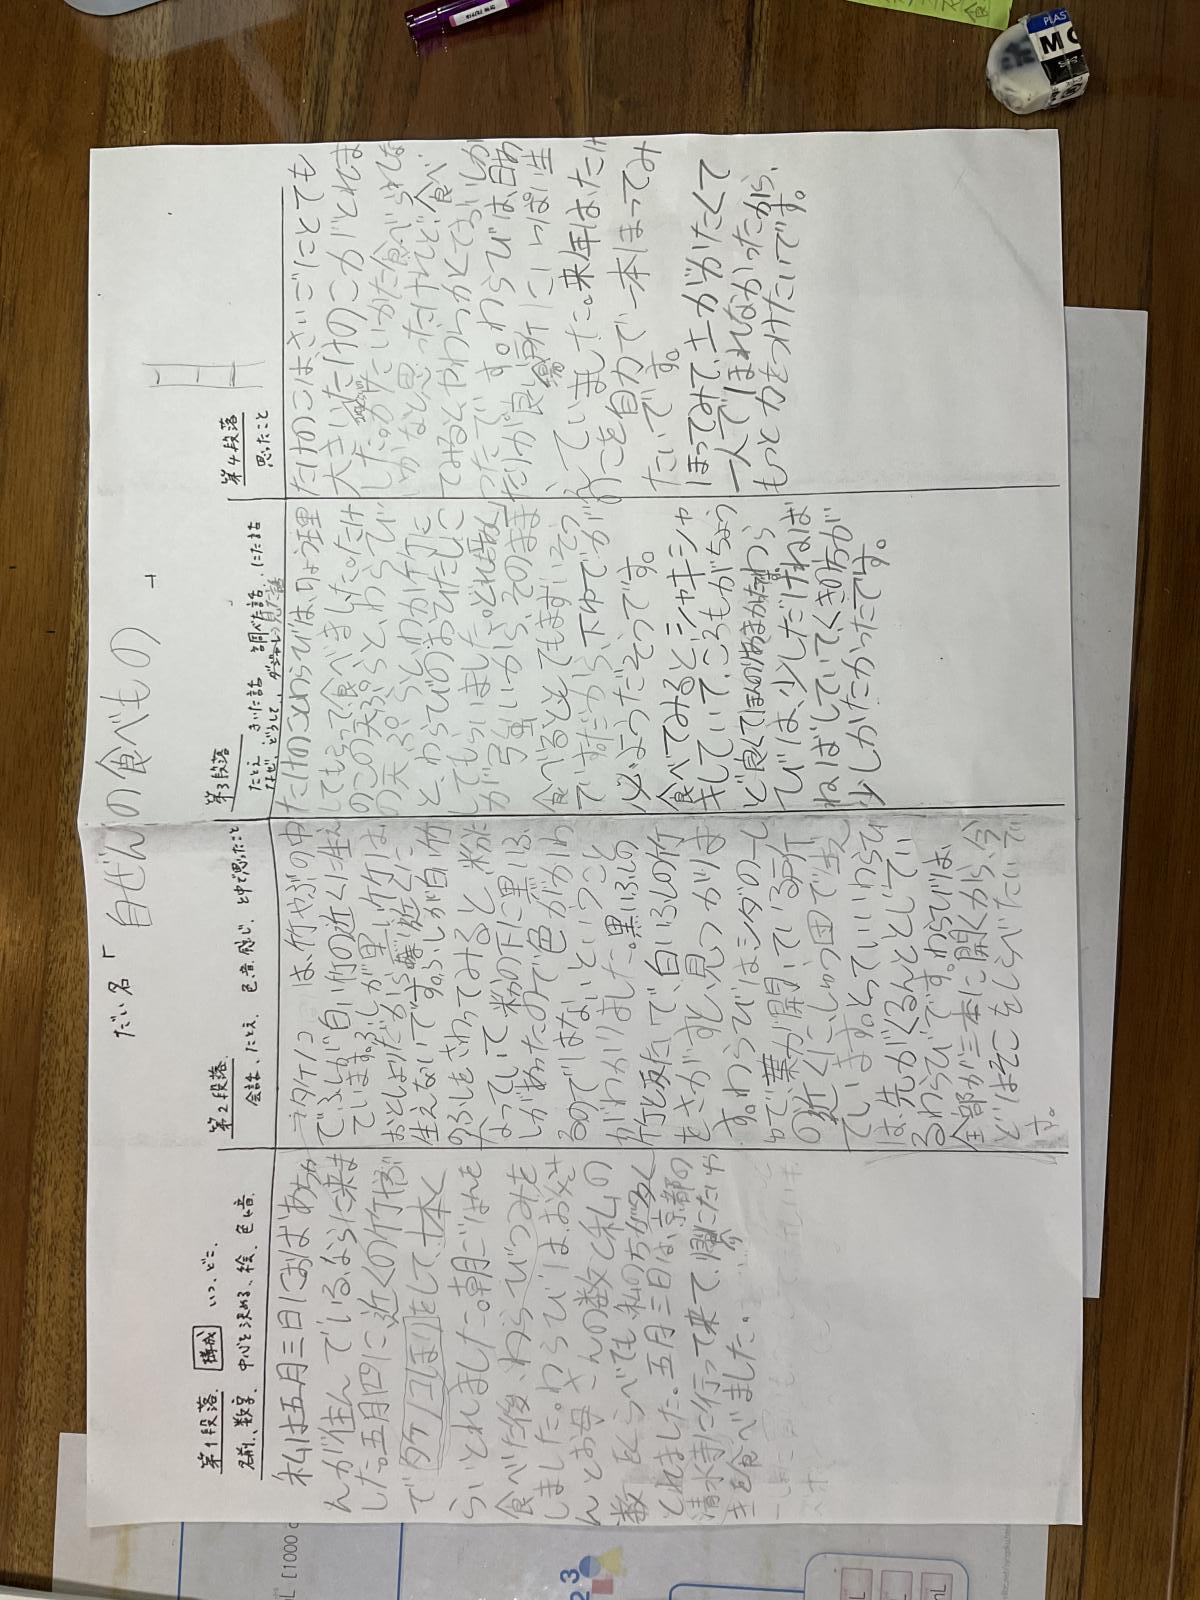 だい名「自ぜんの食べもの
第1段落 構成 いつ、どこ、
名前、数字、中心を決める、絵、色と音
私は五月三日におばあちゃ
んが住んでいる、ならに来ま
した。五月四に、近くの竹やぶ
でタケノコほりをして、十本く
らいとれました。朝ごはんを
食べた後、わらびつみを
しました。わらびは、お父さ
んとお母さんの数と私の
数をくらべても、私の方が多く
とれました。五月三日は、京都の
清水寺に行って来て、
きを食べました。
第2段落
会話、たとえ、色、音、感じ、と中で思ったこと
タケノコは、竹やぶの中
で、ふしが白い竹の近くに生え
ています。ふしが黒い竹は
おとしよりだから近くに
生えないです。ふしが白い竹
のふしをさわってみると、粉に
なっていて、粉の下に黒いふ
しがあったので色がかわ
るのではないということ
がわかりました。黒いふしの
竹と反たいで、白いふしの竹
をさがすと、見つかりま
す。わらびはシダの一しゅ
で、葉が開いている所
の近くに、しゅう団で生え
ています。とっていいわらび
は、先がくるんととじてい
るわらびです。わらびは、
全部が三本に開くから、今
どはそこをしらべたいで
す。
第3段落
たとえ、きいた話、調べた話、にた話
なぜ、どうして、見た話
たけのことわらびは、りょう理
してもらって食べました。たけ
のこの天ぷらと、わらび
の天ぷらと、わか竹に
と、わらびのおひたしに
してもらいました。どれもあく
が強いから、そのまま
食べるととてもまずいそう
ですだから、下ゆでが
必ようだそうです。
食べてみるとシャキシャ
キしていて、ころもがちょう
ど良くてほんのりあまかった。わら
びは、少しだけねば
ねばしていて、くきの方が
少しかたかったです。
第4段落
思ったこと
たけのこはさいごにとても
大きいたけのこがとれま
したが、かた食べられな
いかなと思ったけれど、食べ
てみるとやわらかくておいしか
ったです。わらびは、日あ
たりが良い場所にいっぱい生
えていました。来年は、たけ
のこを自力で一本ほってみ
たいです。
ほってみて、土がかたくて
一人でほれなかったから、
もっと力をつけたいです。
PLAS
MO
mL [1000 c
2 3
mL